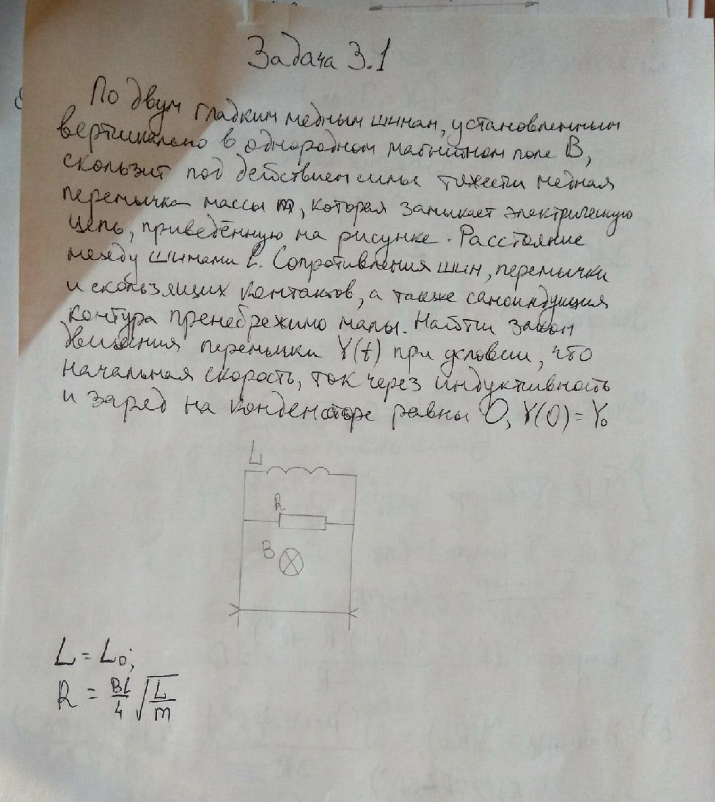 Задача 3.1
По двум гладким медным шинам, установленным
вертикально в однородном магнитном поле B,
скользит под действием силы тяжести медная
перемычка массы m, которая замыкает электрическую
цепь, приведённую на рисунке. Расстояние
между шинами l. Сопротивления шин, перемычки
и скользящих контактов, а также самоиндукция
контура пренебрежимо малы. Найти закон
движения перемычки Y(t) при условии, что
начальная скорость, ток через индуктивность
и заряд на конденсаторе равны 0, Y(0) = Y₀
L
R
B
L = L₀;
R = Bl/4 √(L/m)